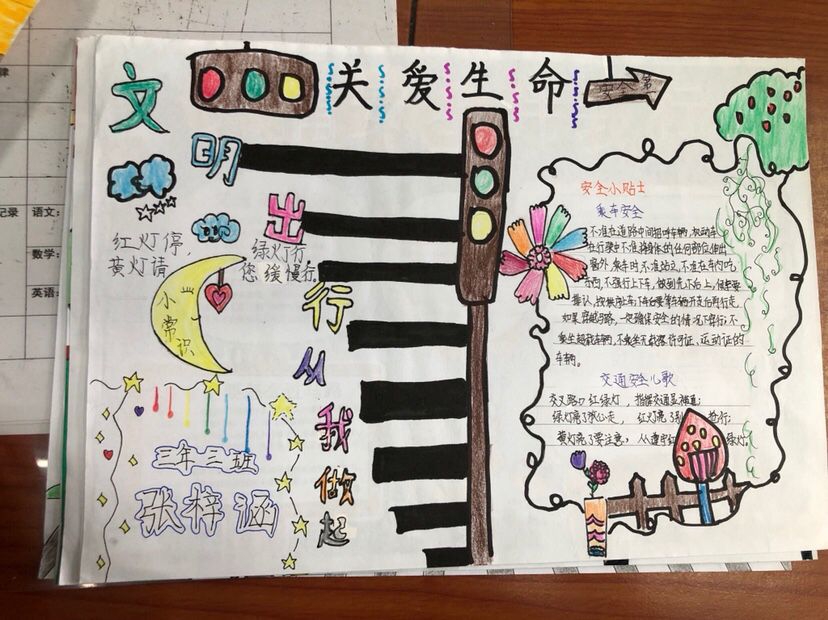 文明出行从我做起
关爱生命
安全第一
红灯停,
黄灯请
绿灯行,
您缓慢行。
小常识
三年三班
张梓涵
安全小贴士
乘车安全
不准在道路中间招呼车辆,机动车
在行驶中不准将身体的任何部位伸出
窗外,乘车时,不准站立,不准在车内吃
东西,不强行上下车,做到先下后上,候车要
排队,按秩序上车;下车后要等车辆开走后再行走,
如要穿越马路,一定确保安全的情况下穿行;不
乘坐超载车辆,不乘坐无载客许可证、运动证的
车辆。
交通安全儿歌
交叉路口红绿灯,指挥交通显神通;
绿灯亮了放心走,红灯亮了别
黄灯亮了要注意,
绿灯
记录
语文:
数学:
英语: